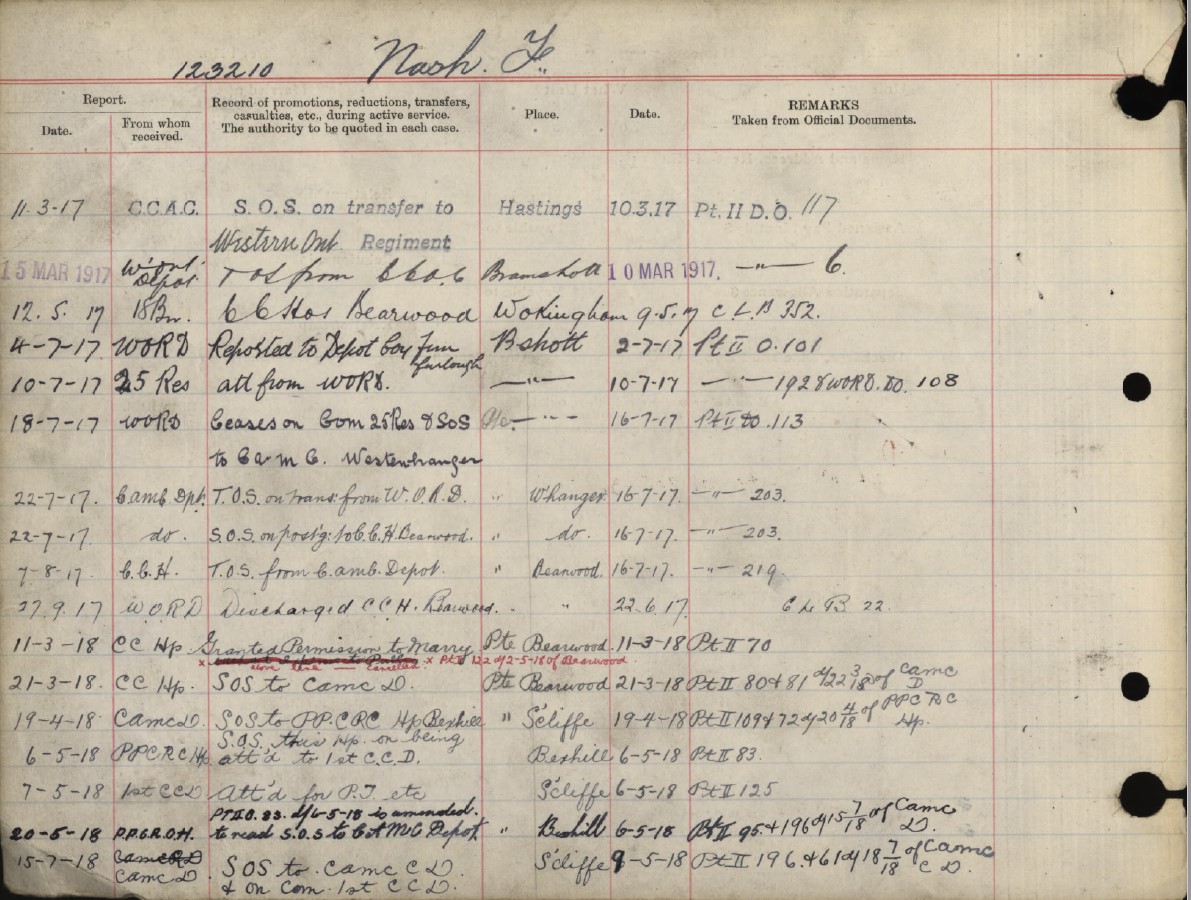 123210 Nash. F.
Report.
Record of promotions, reductions, transfers,
casualties, etc., during active service.
The authority to be quoted in each case.
Place.
Date.
REMARKS
Taken from Official Documents.
Date.
From whom
received.
11.3-17 C.C.A.C. S.O.S. on transfer to Hastings 10.3.17 Pt. II D.O. 117
Western Ont Regiment
15 MAR 1917 W. Ont. Depot. TOS from C.C.A.C Bramshott 10 MAR 1917. —"— 6.
12.5.17 18 Bn. CC Hos Bearwood Wokingham 9.5.17 C L. B 352.
4-7-17 WORD Reported to Depot Coy from furlough Bshott 2-7-17 Pt II O.101
10-7-17 25 Res att from WORD. —"— 10-7-17 —"— 192 & WORD. DO. 108
18-7-17 WORD Ceases on Com 25 Res & SOS —"— 16-7-17 Pt II DO.113
to C.A.M.C. Westenhanger
22-7-17. Camc Dpt. T.O.S. on trans: from W.O.R.D. " W'hanger 16-7-17. —"— 203.
22-7-17. do. S.O.S. on post'g: to C.C.H. Bearwood. " do. 16-7-17. —"— 203.
7-8-17. C.C.H. T.O.S. from C.amC. Depot. " Bearwood. 16-7-17. —"— 219.
27.9.17 W.O.R.D Discharged C.C.H. Bearwood. " 22.6.17 C L B 22.
11-3-18 CC Hp Granted Permission to Marry Pte Bearwood. 11-3-18 Pt II 70
x above line — cancelled x Pt II 122 d/2-5-18 of Bearwood
21-3-18. CC Hp. SOS to Camc D. Pte Bearwood 21-3-18 Pt II 80 & 81 d/22 3/18 of Camc D
19-4-18 Camc D. SOS to PP.CRC Hp Bexhill " S'cliffe 19-4-18 Pt II 109 & 72 d/20 4/18 of PPC RC Hp.
S.O.S. this Hp. on being
6-5-18 PPCRC Hp. att'd to 1st C.C.D. Bexhill 6-5-18 Pt II 83.
7-5-18 1st CCD Att'd for P.T. etc S'cliffe 6-5-18 Pt II 125
Pt II O. 83. d/6-5-18 is amended.
20-5-18 P.P.C.R.C.H. to read S.O.S to C.A.M.C Depot " Bexhill 6-5-18 Pt II 95. & 196 d/15 7/18 of Camc D.
15-7-18 Camc D SOS to Camc C D. S'cliffe 9-5-18 Pt II 196. & 61 d/18 7/18 of Camc C D.
& on Com. 1st C C D.